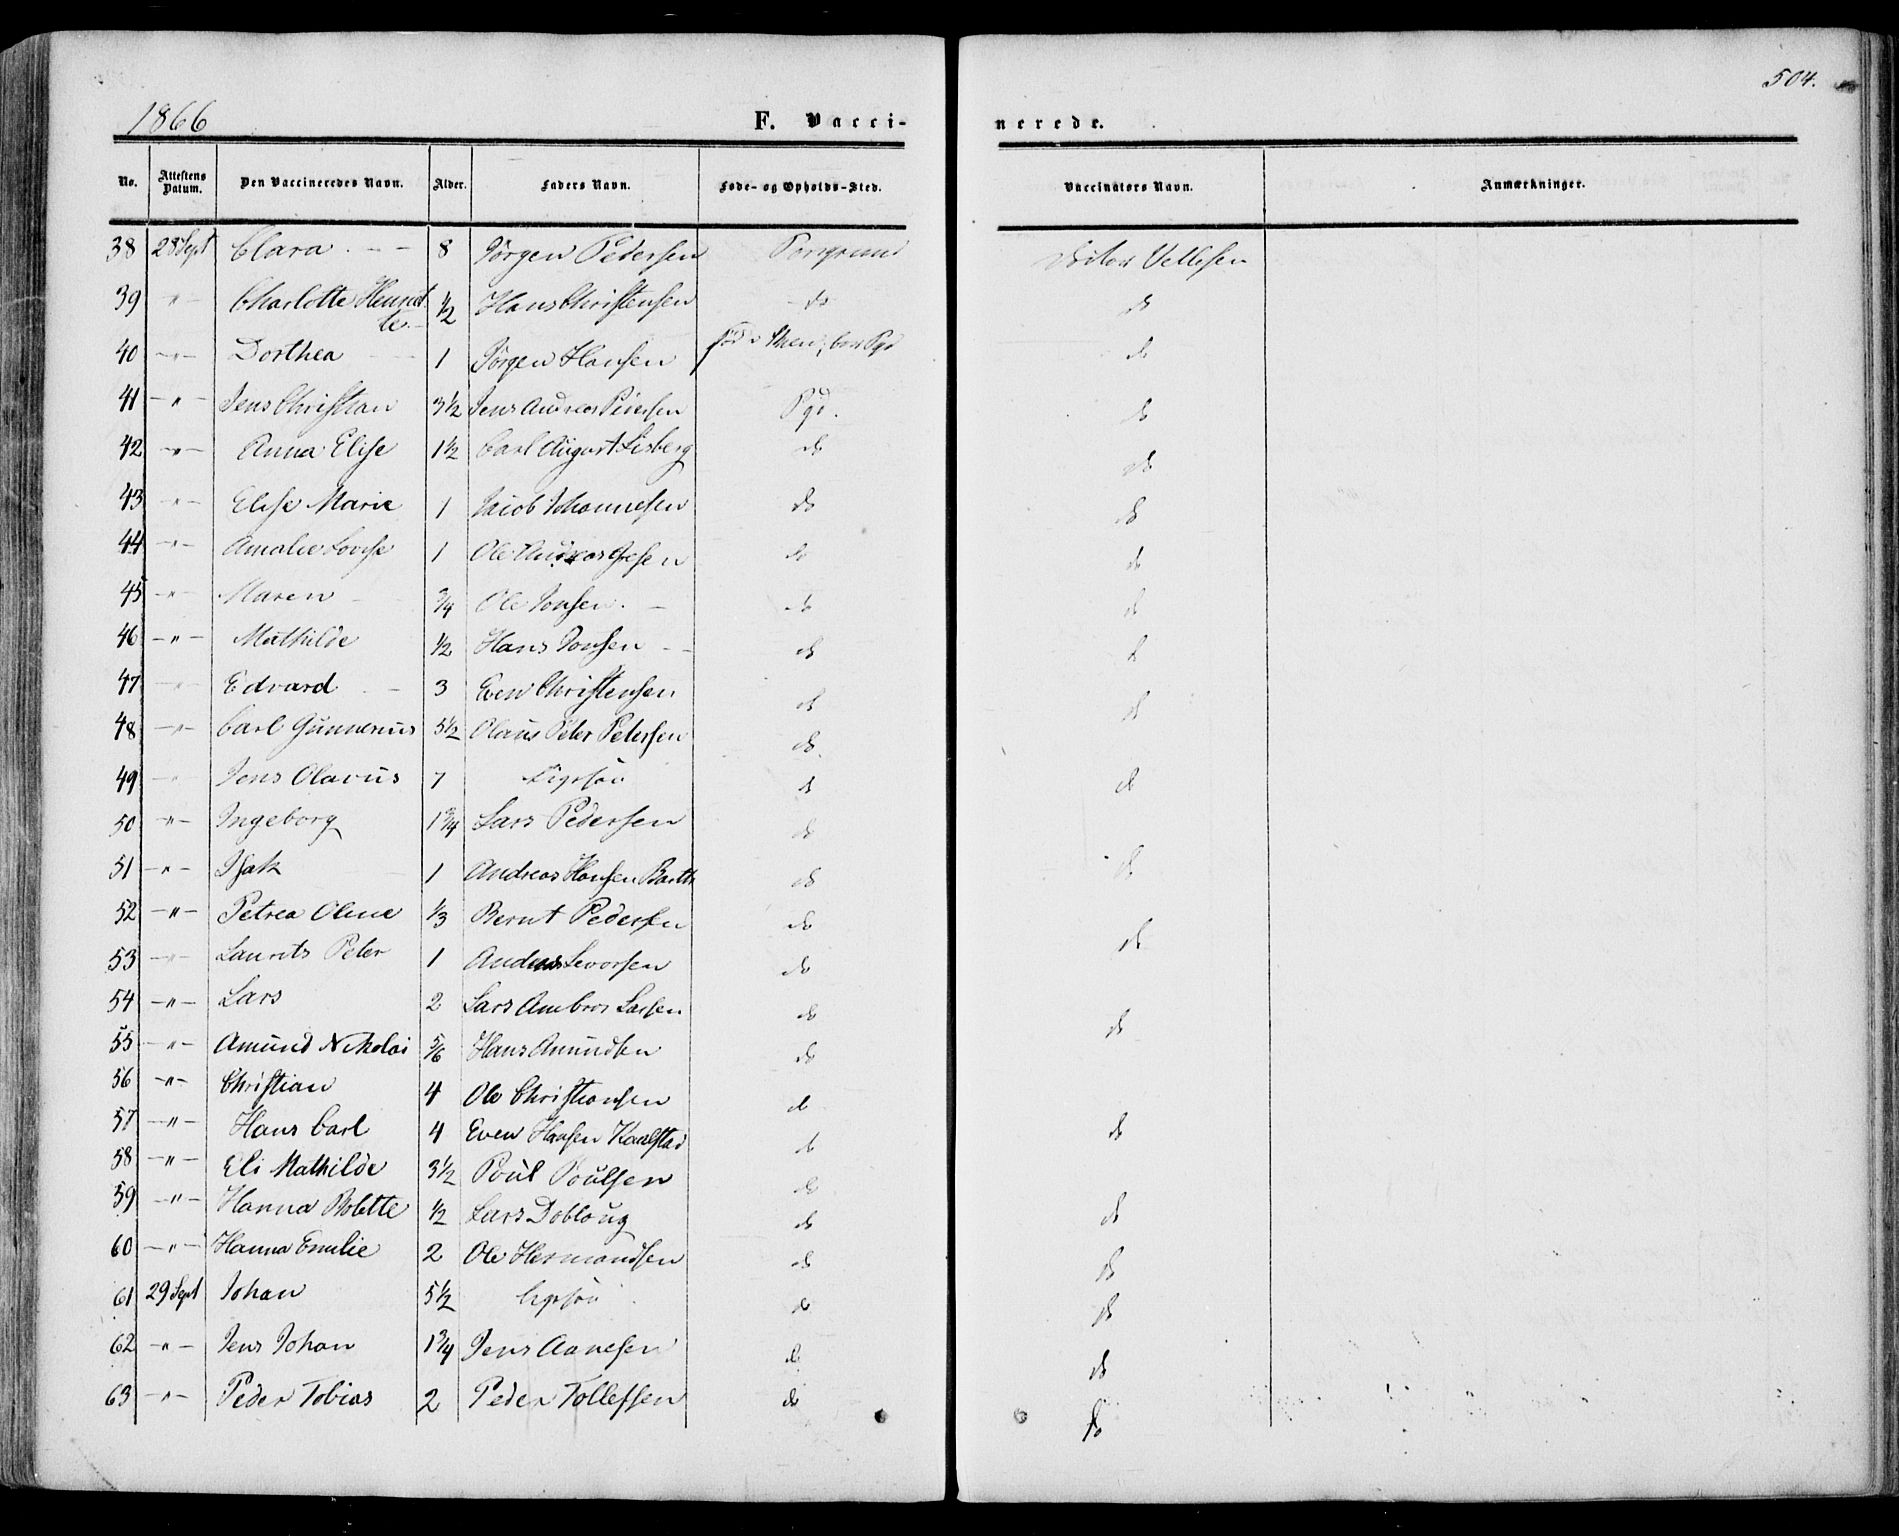 504.
1866 F. Vacci- nerede.
No. Attestens Datum. Den Vaccineredes Navn. Alder. Faders Navn. Føde- og Opholds-Sted. Vaccinators Navn. Anmærkninger.
38 28 Sept Clara 8 Jørgen Pedersen Porsgrund Doctor
39 " Charlotte Henriet 1/2 Hans Christensen do do
te
40 " Dorthea 1 Jørgen Hansen fød i Skien, boer Pgd do
41 " Jens Christian 3 1/2 Jens Andreas Pedersen Pgd. do
42 " Anna Elise 1 1/2 Carl August Lisberg do do
43 " Elise Marie 1 Jacob Johannesen do do
44 " Amalie Lovise 1 Ole Andreas do do
45 " Maren 3/4 Ole Jonsen. do do
46 " Mathilde 1/2 Hans Jonsen do do
47 " Edvard 3 Even Christensen do do
48 " Carl Gunnerius 5 1/2 Olaus Peter Petersen do
49 " Jens Olavus 7 Ligesaa do do
50 " Ingeborg 1 3/4 Lars Pedersen do
51 " Isak 1 Andreas Hansen Barth do do
52 " Petrea Oline 1/3 Bernt Pedersen do do
53 " Laurits Peter 1 Anders Levorsen do
54 " Lars 2 Lars Ambros Larsen do do
55 " Amund Nikolai 5/6 Hans Amundsen do
56 " Christian 4 Ole Christiansen do
57 " Hans Carl 4 Even Hansen Kaalstad do do
58 " Eli Mathilde 3 1/2 Poul Poulsen do
59 " Hanna Bolette 1/2 Lars Dobloug do do
60 " Hanna Emilie 2 Ole Hermandsen do do
61 29 Sept Johan 5 1/2 Ligesaa do do
62 " Jens Johan 1 3/4 Jens Aanesen do do
63 " Peder Tobias 2 Peder Tollefsen do do